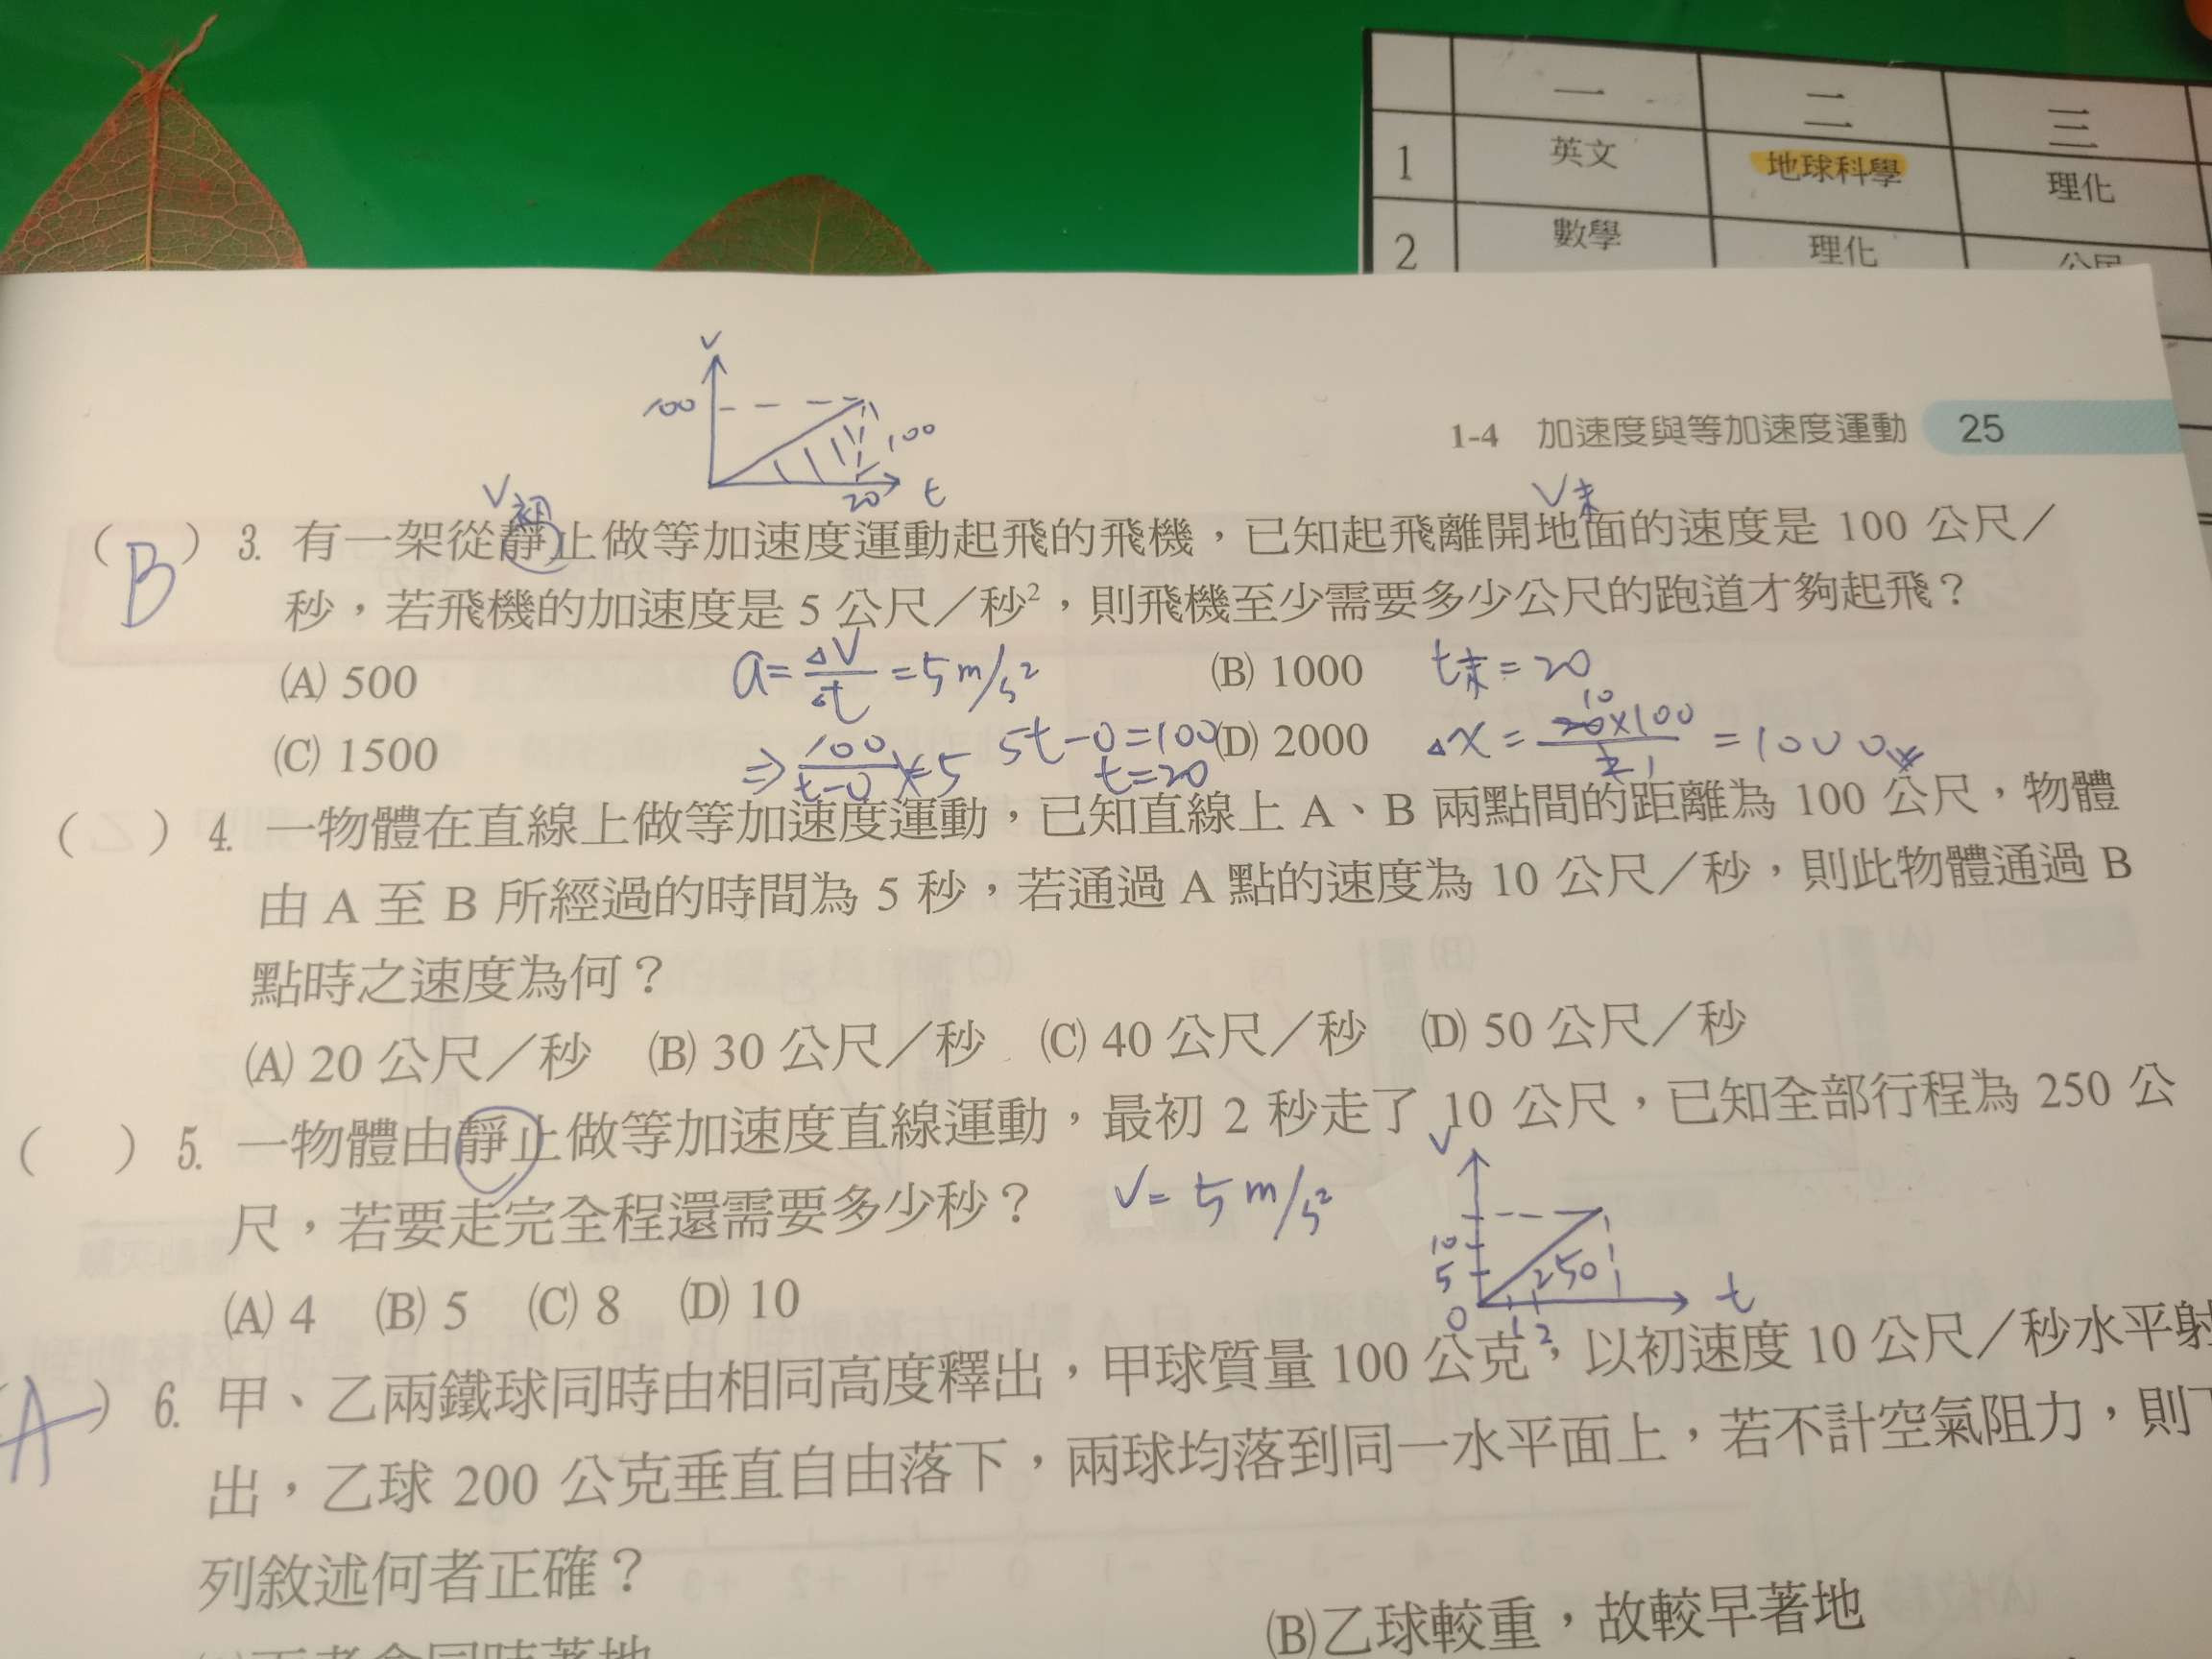 一 二 三
1 英文 地球科學 理化
2 數學 理化
v
100
100
20 t
1-4 加速度與等加速度運動 25
V初 V末
( B ) 3. 有一架從靜止做等加速度運動起飛的飛機，已知起飛離開地面的速度是 100 公尺／
秒，若飛機的加速度是 5 公尺／秒²，則飛機至少需要多少公尺的跑道才夠起飛？
(A) 500 a=ΔV/Δt=5m/s² (B) 1000 t末=20
(C) 1500 ⇒100/(t-0)=5 5t-0=100 t=20 (D) 2000 Δx=20×100/2=1000
10
1
( ) 4. 一物體在直線上做等加速度運動，已知直線上 A、B 兩點間的距離為 100 公尺，物體
由 A 至 B 所經過的時間為 5 秒，若通過 A 點的速度為 10 公尺／秒，則此物體通過 B
點時之速度為何？
(A) 20 公尺／秒 (B) 30 公尺／秒 (C) 40 公尺／秒 (D) 50 公尺／秒
( ) 5. 一物體由靜止做等加速度直線運動，最初 2 秒走了 10 公尺，已知全部行程為 250 公
尺，若要走完全程還需要多少秒？ V=5m/s²
(A) 4 (B) 5 (C) 8 (D) 10
v
10
5 250
0 1 2 t
( A ) 6. 甲、乙兩鐵球同時由相同高度釋出，甲球質量 100 公克，以初速度 10 公尺／秒水平射
出，乙球 200 公克垂直自由落下，兩球均落到同一水平面上，若不計空氣阻力，則
列敘述何者正確？
(B)乙球較重，故較早著地